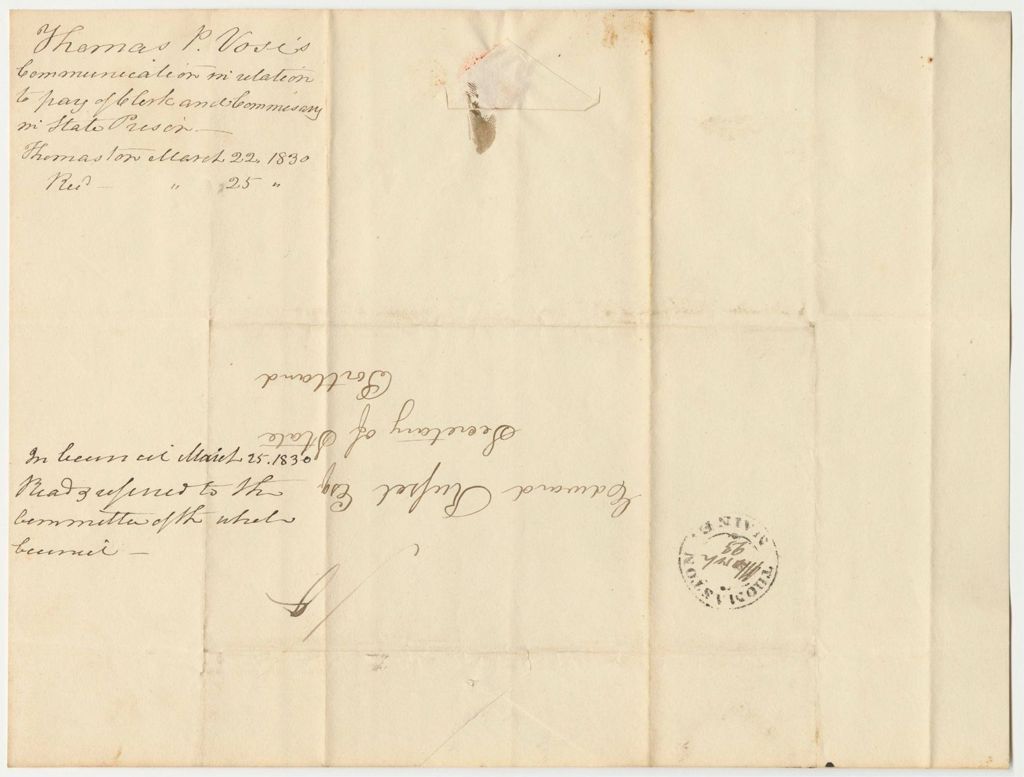 Thomas P. Vose's
Communication in relation
to pay of Clerk and Commissary
in State Prison —
Thomaston March 22. 1830
Recd — " 25 "
In Council March 25. 1830
Read & referred to the
Committee of the whole
Council —
Edward Russel Esq
Secretary of State
Portland
THOMASTON
March
23
MAINE